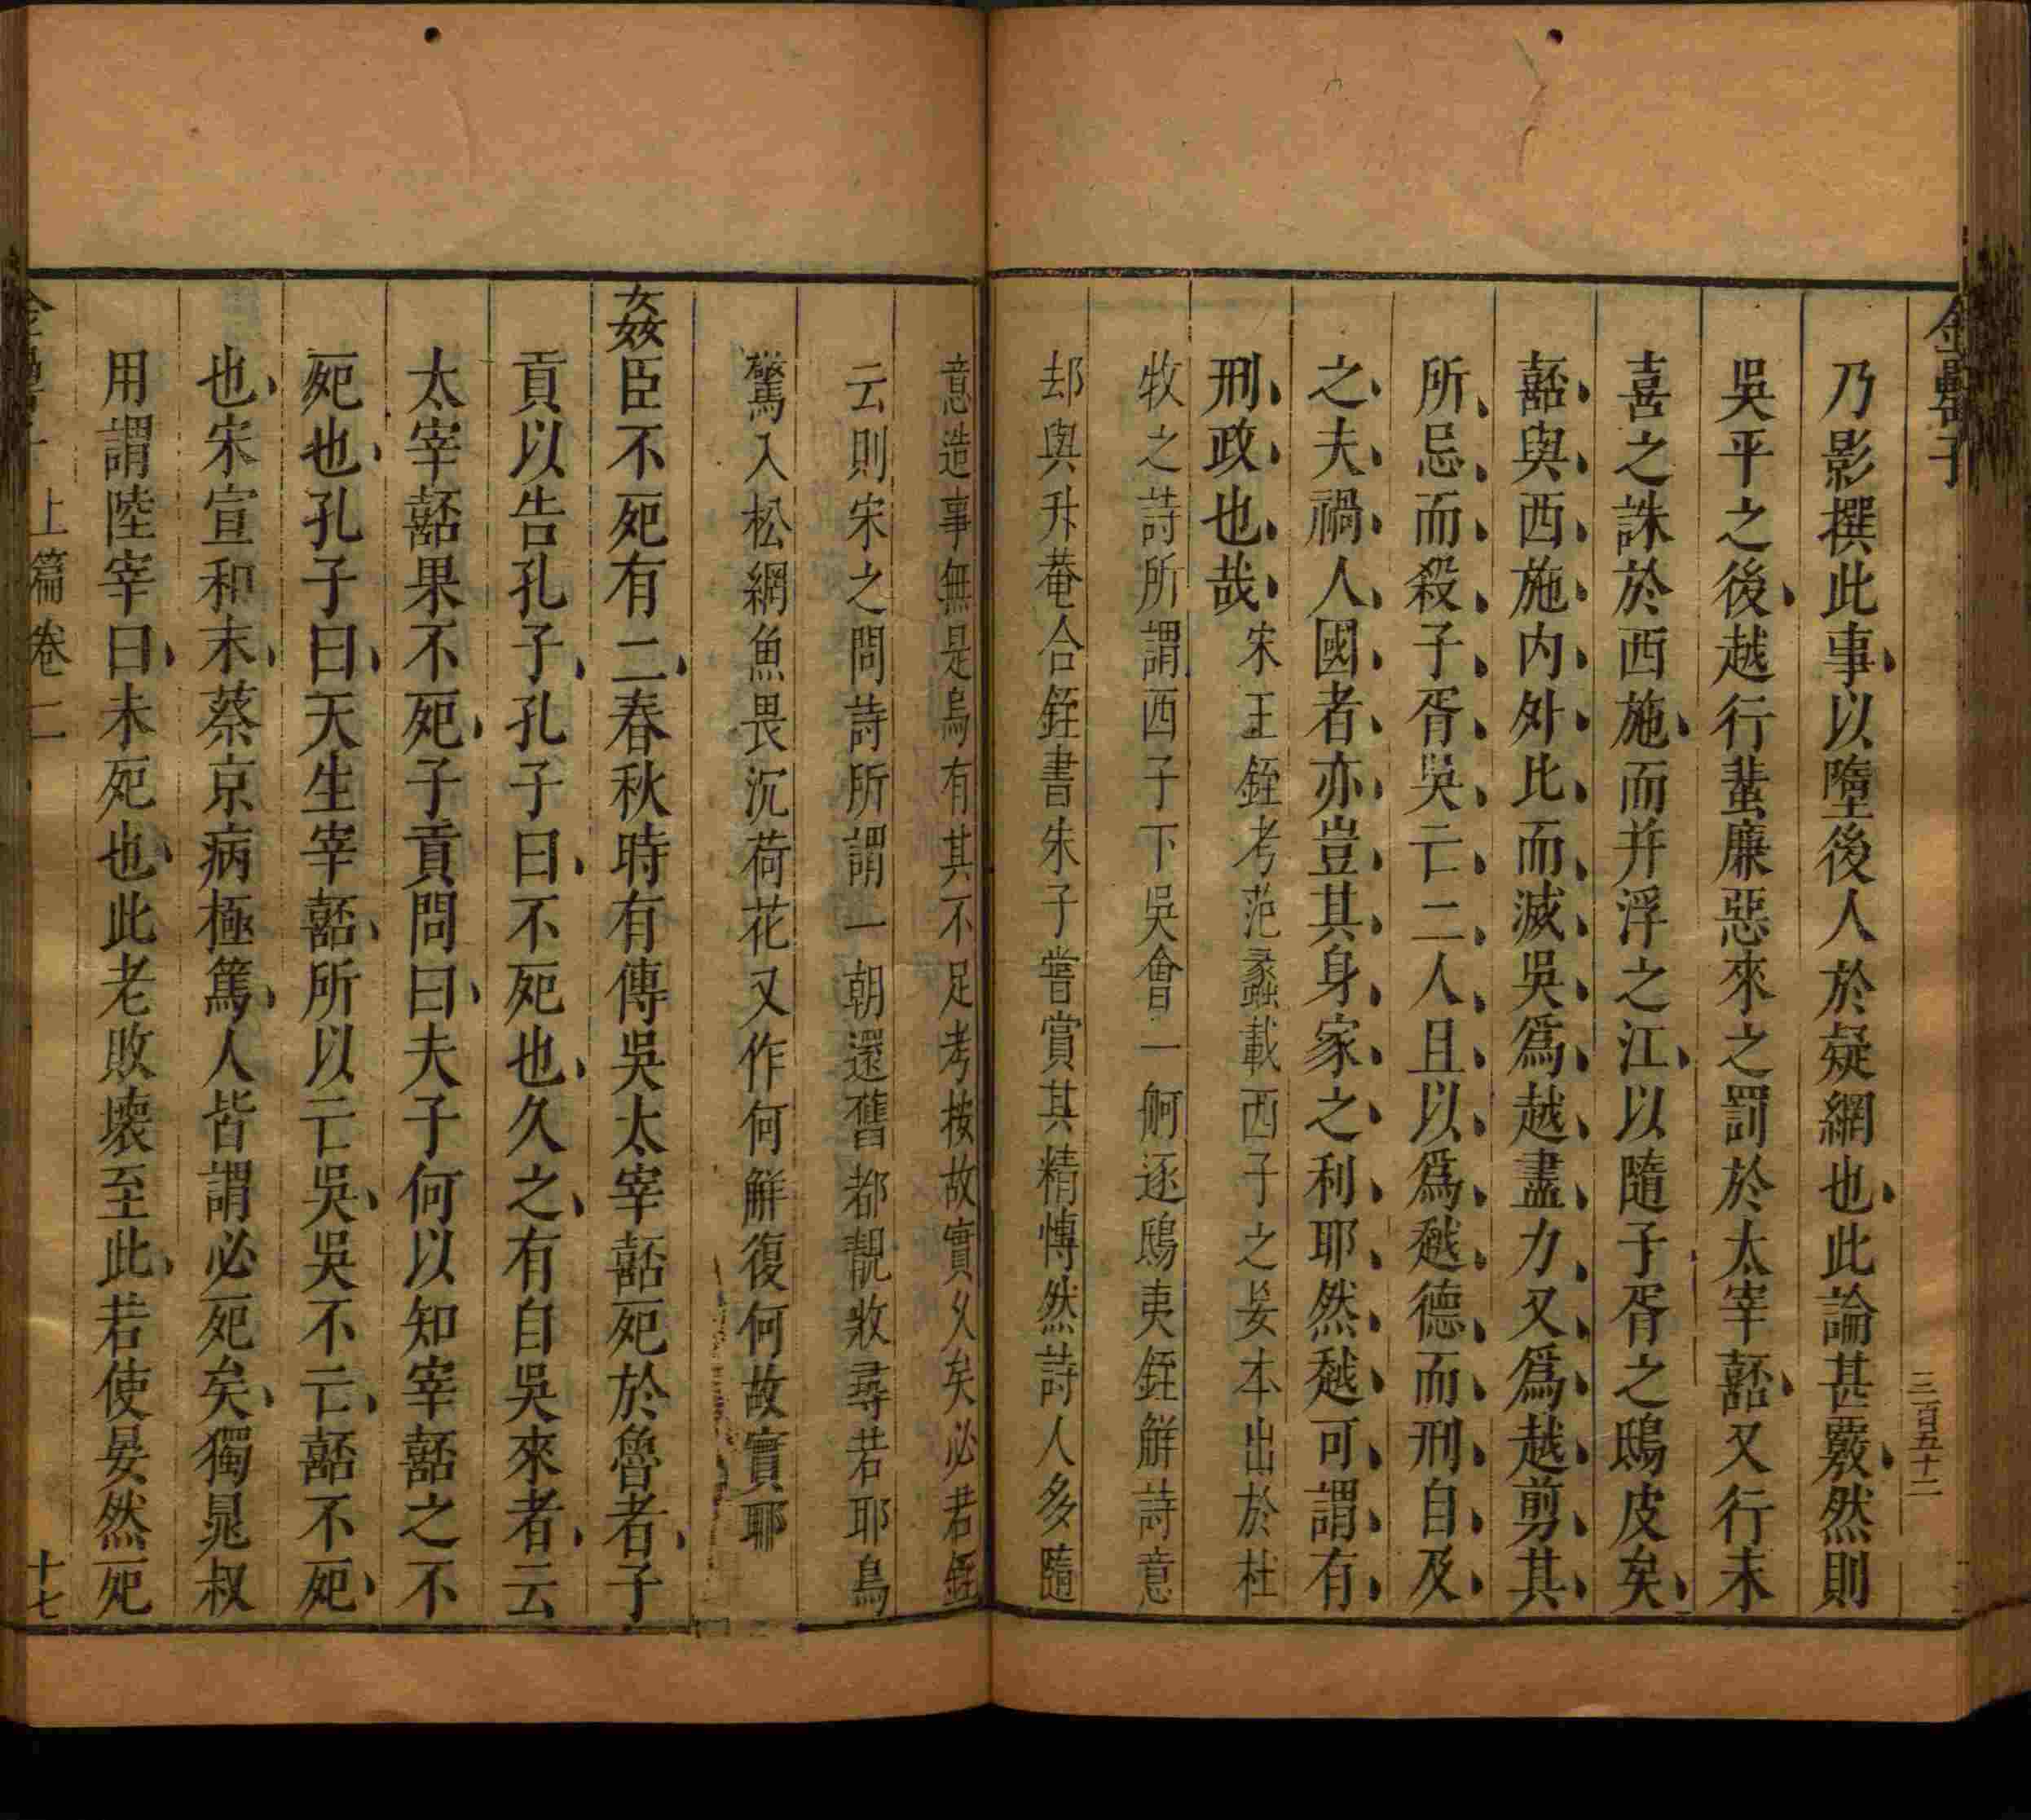 金罍子
三百五十二
乃影撰此事以墮後人於疑網也此論甚覈然則
吳平之後越行蜚廉惡來之罰於太宰嚭又行末
喜之誅於西施而并浮之江以隨子胥之鴟皮矣
嚭與西施内外比而滅吳爲越盡力又爲越剪其
所忌而殺子胥吳亡二人且以爲越德而刑自及
之夫禍人國者亦豈其身家之利耶然越可謂有
刑政也哉宋王銍考范蠡載西子之妄本出於杜
牧之詩所謂西子下吳會一舸逐鴟夷銍解詩意
却與升菴合銍書朱子嘗賞其精愽然詩人多隨
意造事無是烏有其不足考按故實久矣必若銍
云則宋之問詩所謂一朝還舊都靚妝尋若耶鳥
驚入松網魚畏沉荷花又作何解復何故實耶
姦臣不死有二春秋時有傳吳太宰嚭死於魯者子
貢以告孔子孔子曰不死也久之有自吳來者云
太宰嚭果不死子貢問曰夫子何以知宰嚭之不
死也孔子曰天生宰嚭所以亡吳吳不亡嚭不死
也宋宣和末蔡京病極篤人皆謂必死矣獨晁叔
用謂陸宰曰未死也此老敗壊至此若使晏然死
上篇卷二
十七